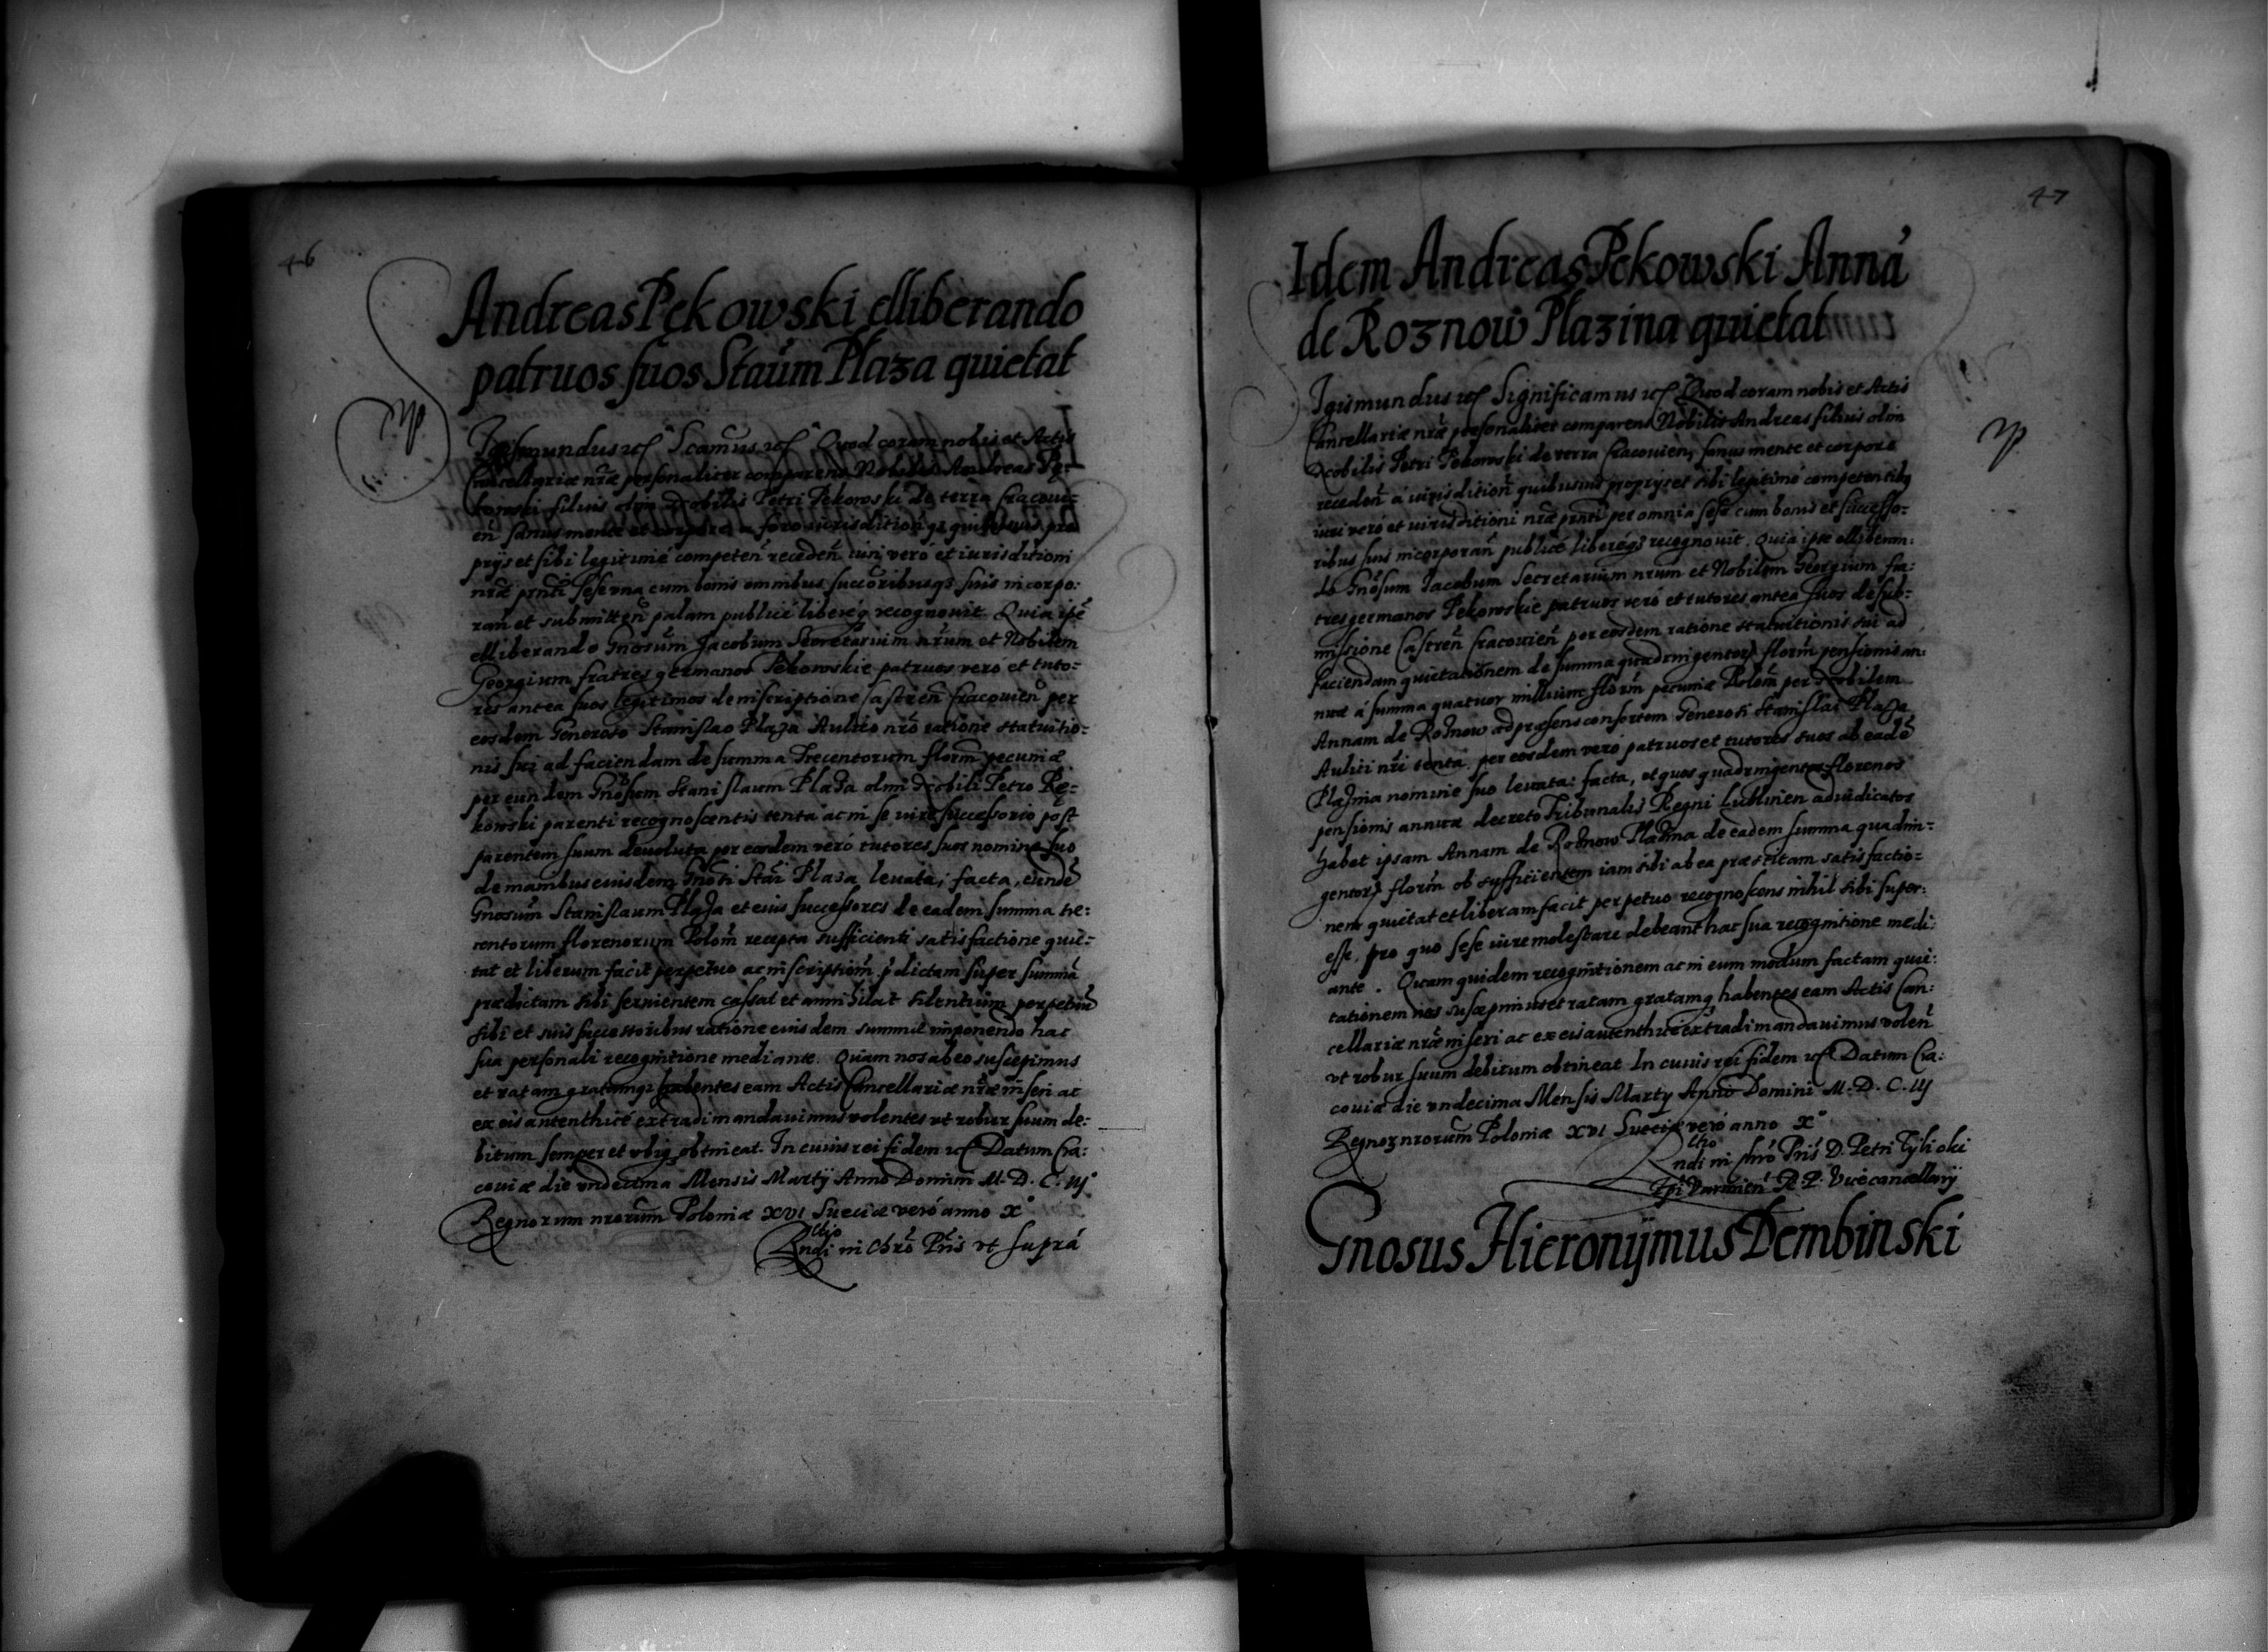 46
Andreas Pekowski elliberando
patruos suos Staūm Płaza quietat
Sigismundus etc Scamus etc Quod coram nobis et Actis
Cancellariæ nr̄æ personaliter comparens Nobilis Andreas Pe-
kowski filius olim Nobilis Petri Pekowski de terra Cracoui-
en̄ sanus mente et corpore a foro iurisdition̄ qz quibusuis pro
prijs et sibi legitimè competen̄ receden̄ iuri verò et iurisditioni
nr̄æ pn̄ti sese vna cum bonis omnibus succ̄oribusqz suis incorpo:
ran̄ et submitten̄ palam publicè liberèq recognouit. Quia ipē
elliberando Gnosum̄ Jacobum Secretarium nr̄um et Nobilem
Georgium fratres germanos Pekowskie patruos verò et tuto-
res antea suos legitimos de inscriptione Castren̄ Cracouien̄ per
eosdem Generoso Stanislao Płaza Aulico nr̄o ratione statuitio-
nis sui ad faciendam de summa Trecentorum florm̄ pecuniæ
per eundem Gn̄osum Stanislaum Płaza olim Nobili Petro Pe-
kowski parenti recognoscentis tenta ac in se iure successorio post
parentem suum deuoluta per eosdem verò tutores suos nomine suo
de manibus eiusdem Gnosi Stai Płaza leuata; facta, eundē
Gnosum̄ Stanislaum Płaza et eius successores de eadem summa tre:
centorum florenorum Polōm recepta sufficienti satisfactione quie-
tat et liberum facit perpetuo ac inscriptiom̄ p̄dictam super summā
prædictam sibi seruientem cassat et annihilat silentium perpetuū
sibi et suis successoribus ratione eiusdem summæ imponendo hac
sua personali recognitione mediante. Quam nos ab eo suscepimus
et ratam gratamqz habentes eam Actis Cancellariæ nr̄æ inseri ac
ex eis autenthicè extradi mandauimus volentes vt robur suum de:
bitum semper et vbiq obtineat. In cuius rei fidem etc Datum Cra:
couiæ die vndecima Mensis Martij Anno Domini M. D. C. iij°
Regnorum nrorum̄ Poloniæ xvi Sueciæ verò anno x°
Rndi in Chrō Pr̄is vt suprà
47
Idem Andreas Pekowski Annā
de Roznow Płazina quietat
Sigismundus etc Significamus etc Quod coram nobis et Actis
Cancellariæ nr̄æ personaliter comparens Nobilis Andreas filius olim
Nobilis Petri Pekowski de terra Cracouien, sanus mente et corpore
receden̄ á iurisdition̄ quibusuis proprijs et sibi legitimè competentibq
iuri verò et iurisditioni nr̄æ pn̄ti per omnia sese cum bonis et successo-
ribus suis incorporan̄ publicè liberèqz recognouit. Quia ipse elliberan:
do Gnōsum Jacobum Secretarium nrum et Nobilem Georgium fra:
tres germanos Pekowskie patruos verò et tutores antea suos de sub-
missione Castren̄ Cracouien̄ per eosdem ratione statuitionis sui ad
faciendam quietationem de summa quadringentorz florm̄ pensionis an:
nuæ á summa quatuor millium florm̄ pecuniæ Polōm per Nobilem
Annam de Roznow ad præsens consortem Generosi Stanislai Płaza
Aulici nr̄i tenta, per eosdem verò patruos et tutores suos ab eadē
Płazina nomine suo leuata: facta, et quos quadringentos florenos
pensionis annuæ decreto Tribunalis Regni Lublinen adiudicatos
habet ipsam Annam de Roznow Płazina de eadem summa quadrin-
gentorz florm̄ ob sufficientem iam sibi ab ea præstitam satisfactio-
nem quietat et liberam facit perpetuo recognoscens nihil sibi super:
esse, pro quo sese iure molestare debeant hac sua recognitione medi:
ante. Quam quidem recognitionem ac in eum modum factam quie:
tationem nos suscepimus et ratam gratamq habentes eam Actis Can:
cellariæ nr̄æ inseri ac ex eis autenthicè extradi mandauimus volen̄
vt robur suum debitum obtineat In cuius rei fidem etc Datum Cra:
couiæ die vndecima Mensis Martij Anno Domini M. D. C. iij
Regnorz nrorum̄ Poloniæ xvi Sueciæ verò anno x°
Rndi in Chrō Pr̄is D. Petri Tylicki
Epi Varmien̄ R. P. Vicecancellarij
Gnosus Hieronymus Dembinski